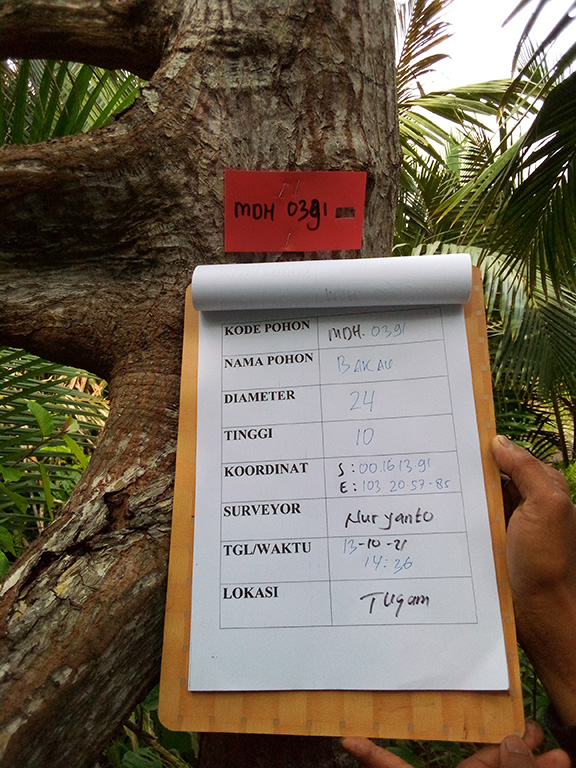 MDH 0391
KODE POHON MDH. 0391
NAMA POHON BAKAU
DIAMETER 24
TINGGI 10
KOORDINAT S : 00.16 13.91
E : 103 20.57.85
SURVEYOR Nuryanto
TGL/WAKTU 13-10-21
14:36
LOKASI Tugam